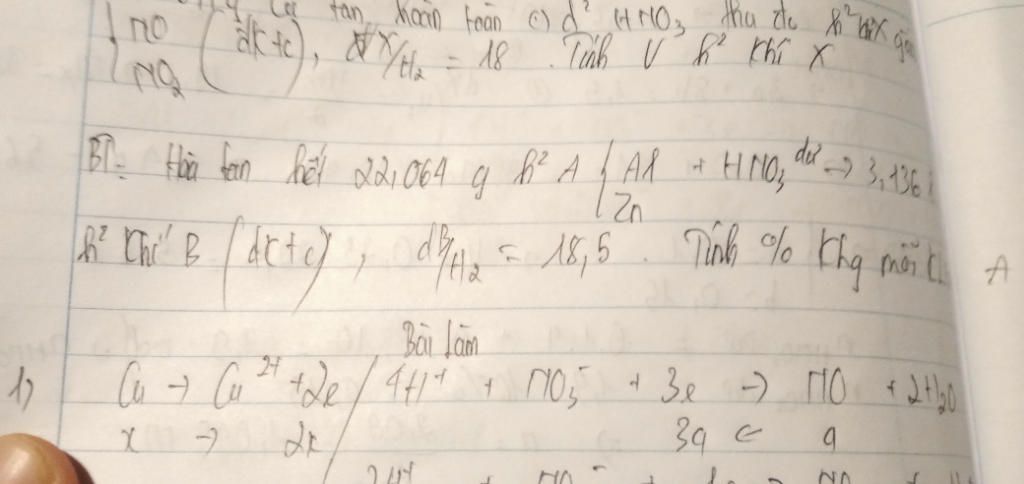 tan hoàn toàn (-) d² HNO₃ thu đc h² X
{ NO
NO₂ (đktc), dX/H₂ = 18. Tính V h² khí X
BT: Hoà tan hết 22,064 g h² A { Al + HNO₃ dư → 3,136
Zn
h² khí B (đktc), dB/H₂ = 18,5. Tính % khg mỗi A
Bài làm
1) Cu → Cu²⁺ + 2e / 4H⁺ + NO₃⁻ + 3e → NO + 2H₂O
x → 2x / 3a ← a
2H⁺ +